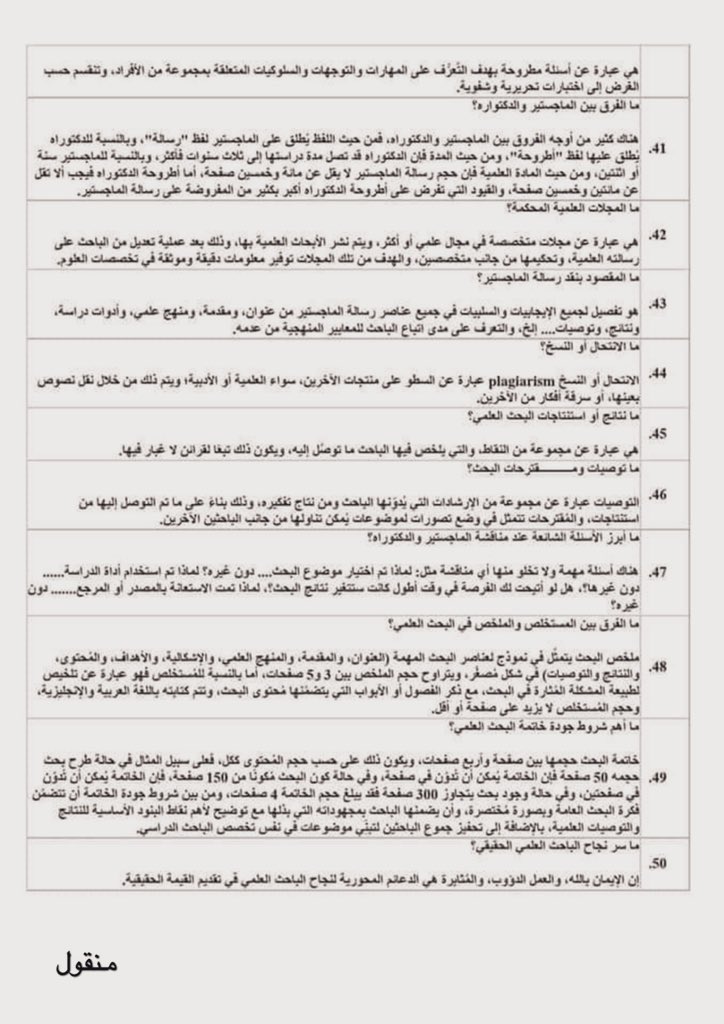 هي عبارة عن أسئلة مطروحة بهدف التَّعرُّف على المهارات والتوجهات والسلوكيات المتعلقة بمجموعة من الأفراد، وتنقسم حسب
الغرض إلى اختبارات تحريرية وشفوية.
ما الفرق بين الماجستير والدكتوراه؟
41.
هناك كثير من أوجه الفروق بين الماجستير والدكتوراه، فمن حيث اللفظ يُطلق على الماجستير لفظ "رسالة"، وبالنسبة للدكتوراه
يُطلق عليها لفظ "أطروحة"، ومن حيث المدة فإن الدكتوراه قد تصل مدة دراستها إلى ثلاث سنوات فأكثر، وبالنسبة للماجستير سنة
أو اثنتين، ومن حيث المادة العلمية فإن حجم رسالة الماجستير لا يقل عن مائة وخمسين صفحة، أما أطروحة الدكتوراه فيجب ألا تقل
عن مائتين وخمسين صفحة، والقيود التي تفرض على أطروحة الدكتوراه أكبر بكثير من المفروضة على رسالة الماجستير.
ما المجلات العلمية المحكمة؟
42.
هي عبارة عن مجلات متخصصة في مجال علمي أو أكثر، ويتم نشر الأبحاث العلمية بها، وذلك بعد عملية تعديل من الباحث على
رسالته العلمية، وتحكيمها من جانب متخصصين، والهدف من تلك المجلات توفير معلومات دقيقة وموثقة في تخصصات العلوم.
ما المقصود بنقد رسالة الماجستير؟
43.
هو تفصيل لجميع الإيجابيات والسلبيات في جميع عناصر رسالة الماجستير من عنوان، ومقدمة، ومنهج علمي، وأدوات دراسة،
ونتائج، وتوصيات.... إلخ، والتعرف على مدى اتباع الباحث للمعايير المنهجية من عدمه.
ما الانتحال أو النسخ؟
44.
الانتحال أو النسخ plagiarism عبارة عن السطو على منتجات الآخرين، سواء العلمية أو الأدبية؛ ويتم ذلك من خلال نقل نصوص
بعينها، أو سرقة أفكار من الآخرين.
ما نتائج أو استنتاجات البحث العلمي؟
45.
هي عبارة عن مجموعة من النقاط، والتي يلخص فيها الباحث ما توصَّل إليه، ويكون ذلك تبعًا لقرائن لا غبار فيها.
ما توصيات ومــــــــقترحات البحث؟
46.
التوصيات عبارة عن مجموعة من الإرشادات التي يُدوّنها الباحث ومن نتاج تفكيره، وذلك بناءً على ما تم التوصل إليها من
استنتاجات، والمُقترحات تتمثل في وضع تصورات لموضوعات يُمكن تناولها من جانب الباحثين الآخرين.
ما أبرز الأسئلة الشائعة عند مناقشة الماجستير والدكتوراه؟
47.
هناك أسئلة مهمة ولا تخلو منها أي مناقشة مثل: لماذا تم اختيار موضوع البحث.... دون غيره؟ لماذا تم استخدام أداة الدراسة......
دون غيرها؟، هل لو أُتيحت لك الفرصة في وقت أطول كانت ستتغير نتائج البحث؟، لماذا تمت الاستعانة بالمصدر أو المرجع....... دون
غيره؟
ما الفرق بين المستخلص والملخص في البحث العلمي؟
48.
ملخص البحث يتمثَّل في نموذج لعناصر البحث المهمة (العنوان، والمقدمة، والمنهج العلمي، والإشكالية، والأهداف، والمُحتوى،
والنتائج والتوصيات) في شكل مُصغَّر، ويتراوح حجم الملخص بين 3 و5 صفحات، أما بالنسبة للمُستخلص فهو عبارة عن تلخيص
لطبيعة المشكلة المُثارة في البحث، مع ذكر الفصول أو الأبواب التي يتضمَّنها مُحتوى البحث، وتتم كتابته باللغة العربية والإنجليزية،
وحجم المُستخلص لا يزيد على صفحة أو أقل.
ما أهم شروط جودة خاتمة البحث العلمي؟
49.
خاتمة البحث حجمها بين صفحة وأربع صفحات، ويكون ذلك على حسب حجم المُحتوى ككل، فعلى سبيل المثال في حالة طرح بحث
حجمه 50 صفحة فإن الخاتمة يُمكن أن تُدوَّن في صفحة، وفي حالة كون البحث مُكونًا من 150 صفحة، فإن الخاتمة يُمكن أن تُدوَّن
في صفحتين، وفي حالة وجود بحث يتجاوز 300 صفحة فقد يبلغ حجم الخاتمة 4 صفحات، ومن بين شروط جودة الخاتمة أن تتضمَّن
فكرة البحث العامة وبصورة مُختصرة، وأن يضمنها الباحث بمجهوداته التي بذلها مع توضيح لأهم نقاط البنود الأساسية للنتائج
والتوصيات العلمية، بالإضافة إلى تحفيز جموع الباحثين لتبنِّي موضوعات في نفس تخصص الباحث الدراسي.
ما سر نجاح الباحث العلمي الحقيقي؟
50.
إن الإيمان بالله، والعمل الدؤوب، والمُثابرة هي الدعائم المحورية لنجاح الباحث العلمي في تقديم القيمة الحقيقية.
منقول